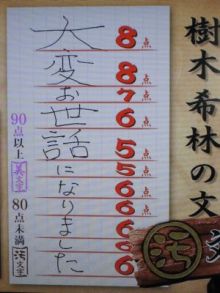 樹木希林の文
大変お世話になりました
8点
8点
7点
6点
5点
5点
6点
6点
6点
6点
90点以上
美文字
80点未満
汚文字
汚